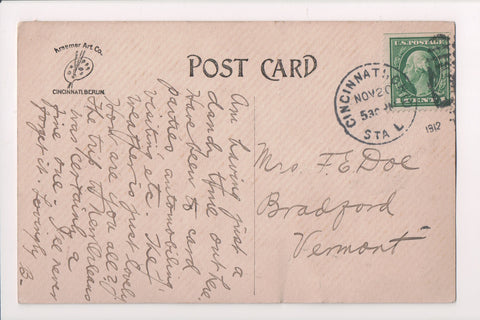 Kraemer Art Co.
CINCINNATI, BERLIN.
POST CARD
U.S. POSTAGE
CINCINNATI, O.
NOV 20
530 
STA L
1912
Am having just a
dandy time out here.
Have been to card
parties, automobiling,
visiting, etc. The
weather is just lovely
How are you all?
The trip to New Orleans
was certainly a
fine one - I'll never
forget it. Lovingly
B-
Mrs. F. E. Doe
Bradford
Vermont